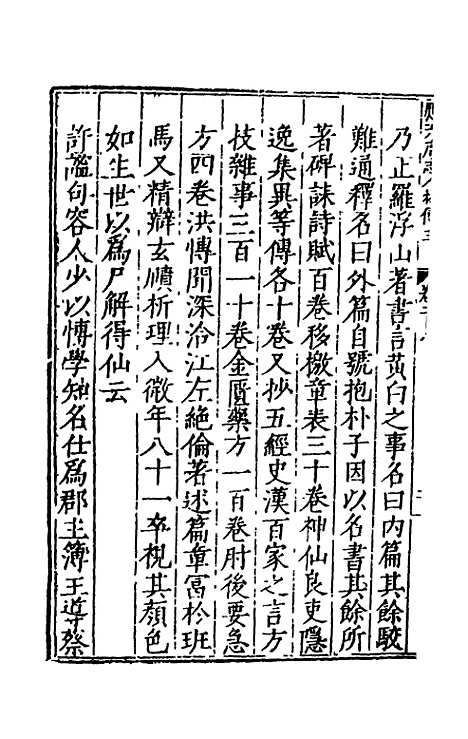 乃止羅浮山著書言黃白之事名曰內篇其餘駁
難通釋名曰外篇自號抱朴子因以名書其餘所
著碑誄詩賦百卷移檄章表三十卷神仙良吏隱
逸集異等傳各十卷又抄五經史漢百家之言方
技雜事三百一十卷金匱藥方一百卷肘後要急
方四卷洪愽聞深洽江左絶倫著述篇章富於班
馬又精辯玄賾析理入微年八十一卒視其顏色
如生世以爲尸解得仙云
許謐句容人少以愽學知名仕爲郡主簿王導蔡